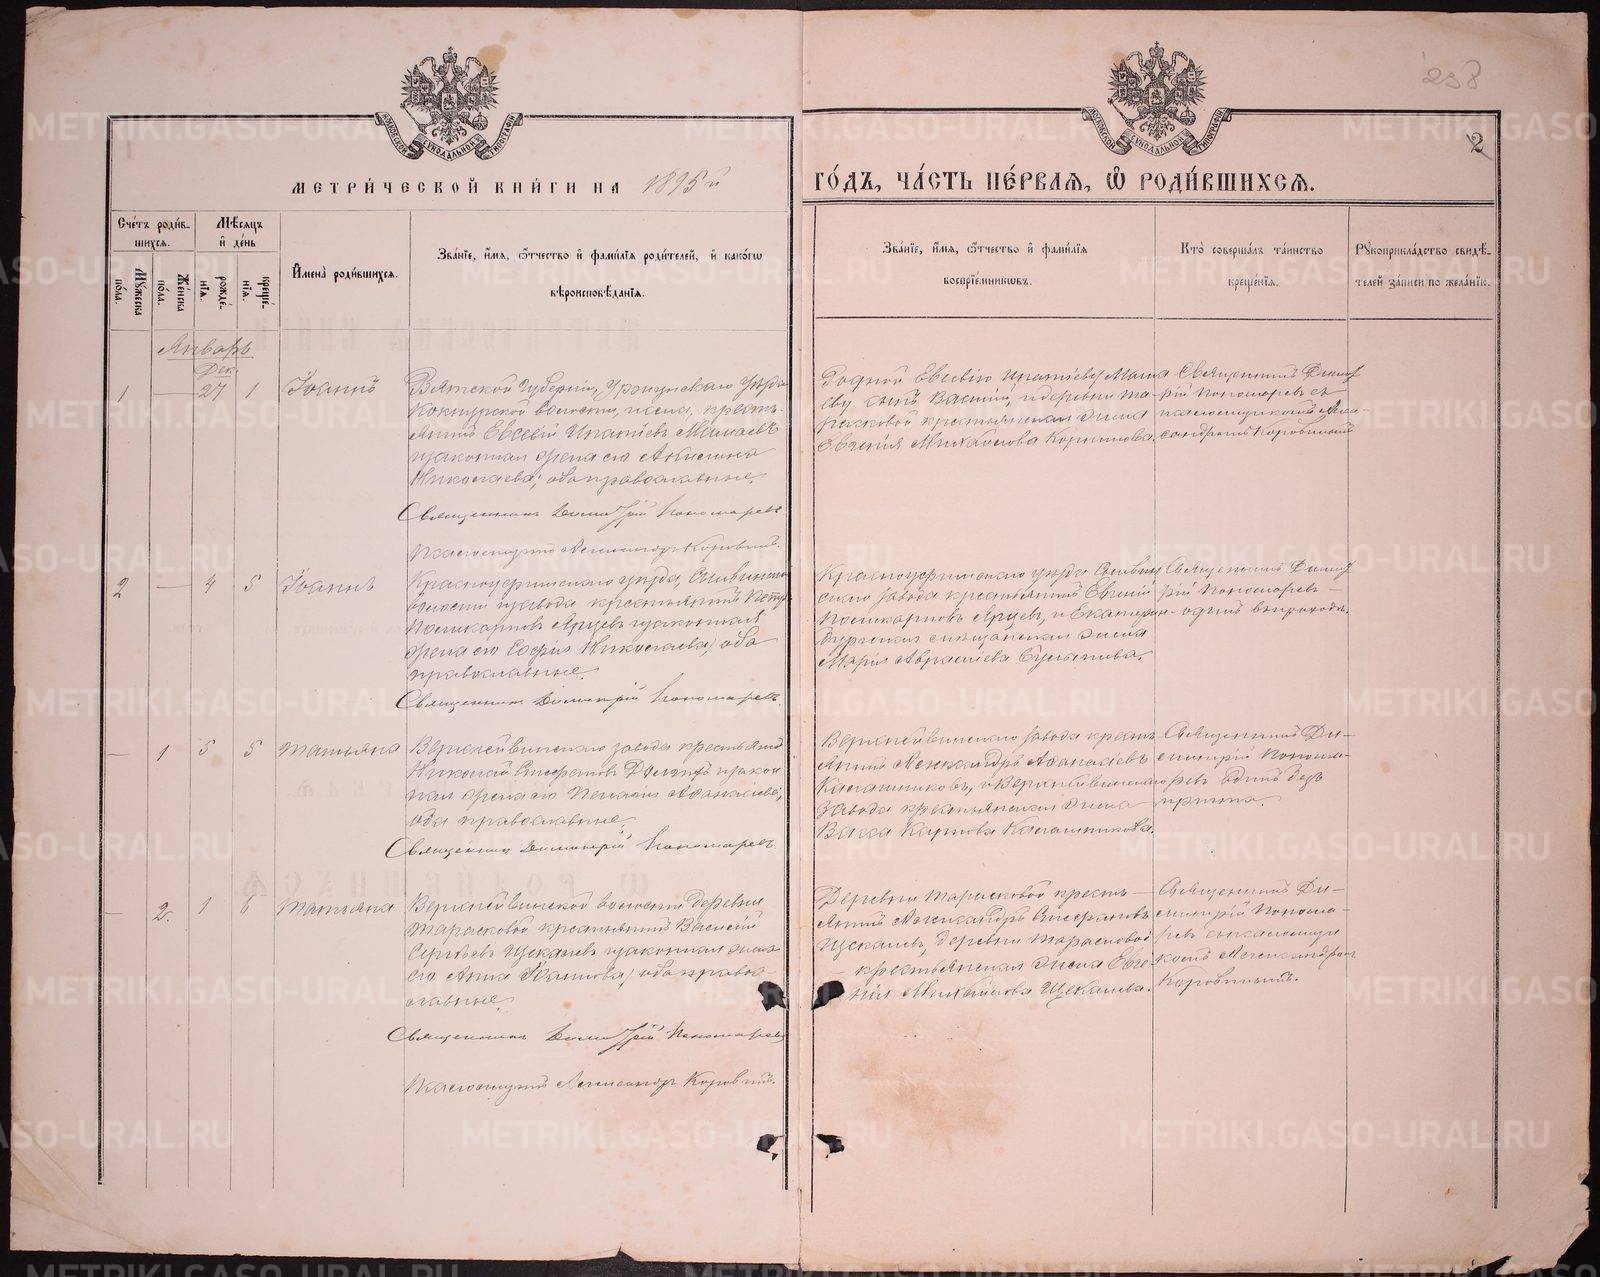 238
2
МОСКОВСКОЙ СѴНОДАЛЬНОЙ ТИПОГРАФІИ
МОСКОВСКОЙ СѴНОДАЛЬНОЙ ТИПОГРАФІИ
МЕТРИ́ЧЕСКОЙ КНИ́ГИ НА 1895й
ГО́ДЪ, ЧА́СТЬ ПЕ́РВАѦ, Ѽ РОДИ́ВШИХСѦ.
Сче́тъ роди́в-
шихсѧ.
Мѣ́сѧцъ
и҆ де́нь
Мꙋ́жеска
по́ла.
Же́нска
по́ла.
рожде́-
нїѧ.
креще́-
нїѧ.
И҆мена̀ роди́вшихсѧ.
Зва́нїе, и҆́мѧ, ѻ҆́тчество и҆ фами́лїѧ роди́телей, и҆ како́гѡ
вѣроисповѣ́данїѧ.
Зва́нїе, и҆́мѧ, ѻ҆́тчество и҆ фами́лїѧ
воспрїе́мникѡвъ.
Кто̀ соверша́лъ та́инство
креще́нїѧ.
Рꙋкоприкла́дство свидѣ́-
телей за́писи по жела́нїю.
Январь
Дек.
1 — 27 1 Іоаннъ
Вятской губерніи, Уржумскаго уѣзда
волости, кресть-
янинъ Евсевій Ипатіевъ Мамаевъ
и законная жена его Акилина
Николаева; оба православные.
Священникъ Димитрій Пономаревъ
Псаломщикъ Александръ Коровинъ.
Родной Евсевію Ипатіеву Мама-
еву сынъ Василій, и деревни Та-
расковой крестьянская жена
Евгенія Михайлова
Священникъ Димит-
рій Пономаревъ съ
псаломщикомъ Алек-
сандромъ Коровинымъ
2 — 4 5 Іоаннъ
Красноуфимскаго уѣзда, Сылвинской
волости и завода крестьянинъ Петръ
Поликарповъ Ярцевъ и законная
жена его Софія Николаева; оба
православные.
Священникъ Димитрій Пономаревъ
Красноуфимскаго уѣзда Сылвин-
скаго завода крестьянинъ Евгеній
Поликарповъ Ярцевъ, и Екатерин-
бургская мѣщанская жена
Марія
Священникъ Димит-
рій Пономаревъ
одинъ
— 1 5 5 Татьяна
Верхнейвинскаго завода крестьянинъ
Николай Стефановъ и закон-
ная жена его Пелагія Афанасіева;
оба православные.
Священникъ Димитрій Пономаревъ
Верхнейвинскаго завода кресть-
янинъ Александръ Афанасіевъ
Калашниковъ, и Верхнейвинскаго
завода крестьянская жена
Васса Карпова Калашникова.
Священникъ Ди-
митрій Понома-
ревъ одинъ безъ
причта.
— 2. 1 6 Татьяна
Верхнейвинской волости деревни
Тарасковой крестьянинъ Василій
Сергѣевъ Щекалевъ и законная жена
его Анна Іоаннова; оба правос-
лавные.
Священникъ Димитрій Пономаревъ
Псаломщикъ Александръ Коровинъ.
Деревни Тарасковой кресть-
янинъ Александръ Стефановъ
Щекалевъ, деревни Тарасковой
крестьянская жена Евге-
нія Михайлова Щекалева.
Священникъ Ди-
митрій Понома-
ревъ съ псаломщи-
комъ Александромъ
Коровинымъ.
METRIKI.GASO-URAL.RU